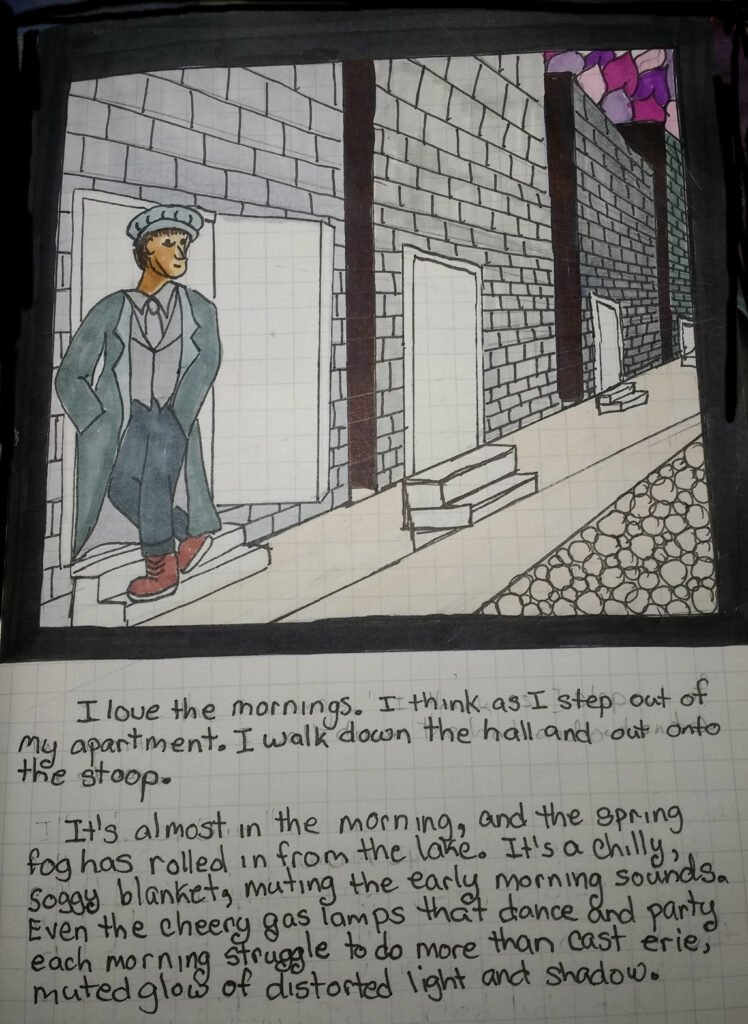 I love the mornings. I think as I step out of
my apartment. I walk down the hall and out onto
the stoop.
It's almost in the morning, and the spring
fog has rolled in from the lake. It's a chilly,
soggy blanket, muting the early morning sounds.
Even the cheery gas lamps that dance and party
each morning struggle to do more than cast erie,
muted glow of distorted light and shadow.